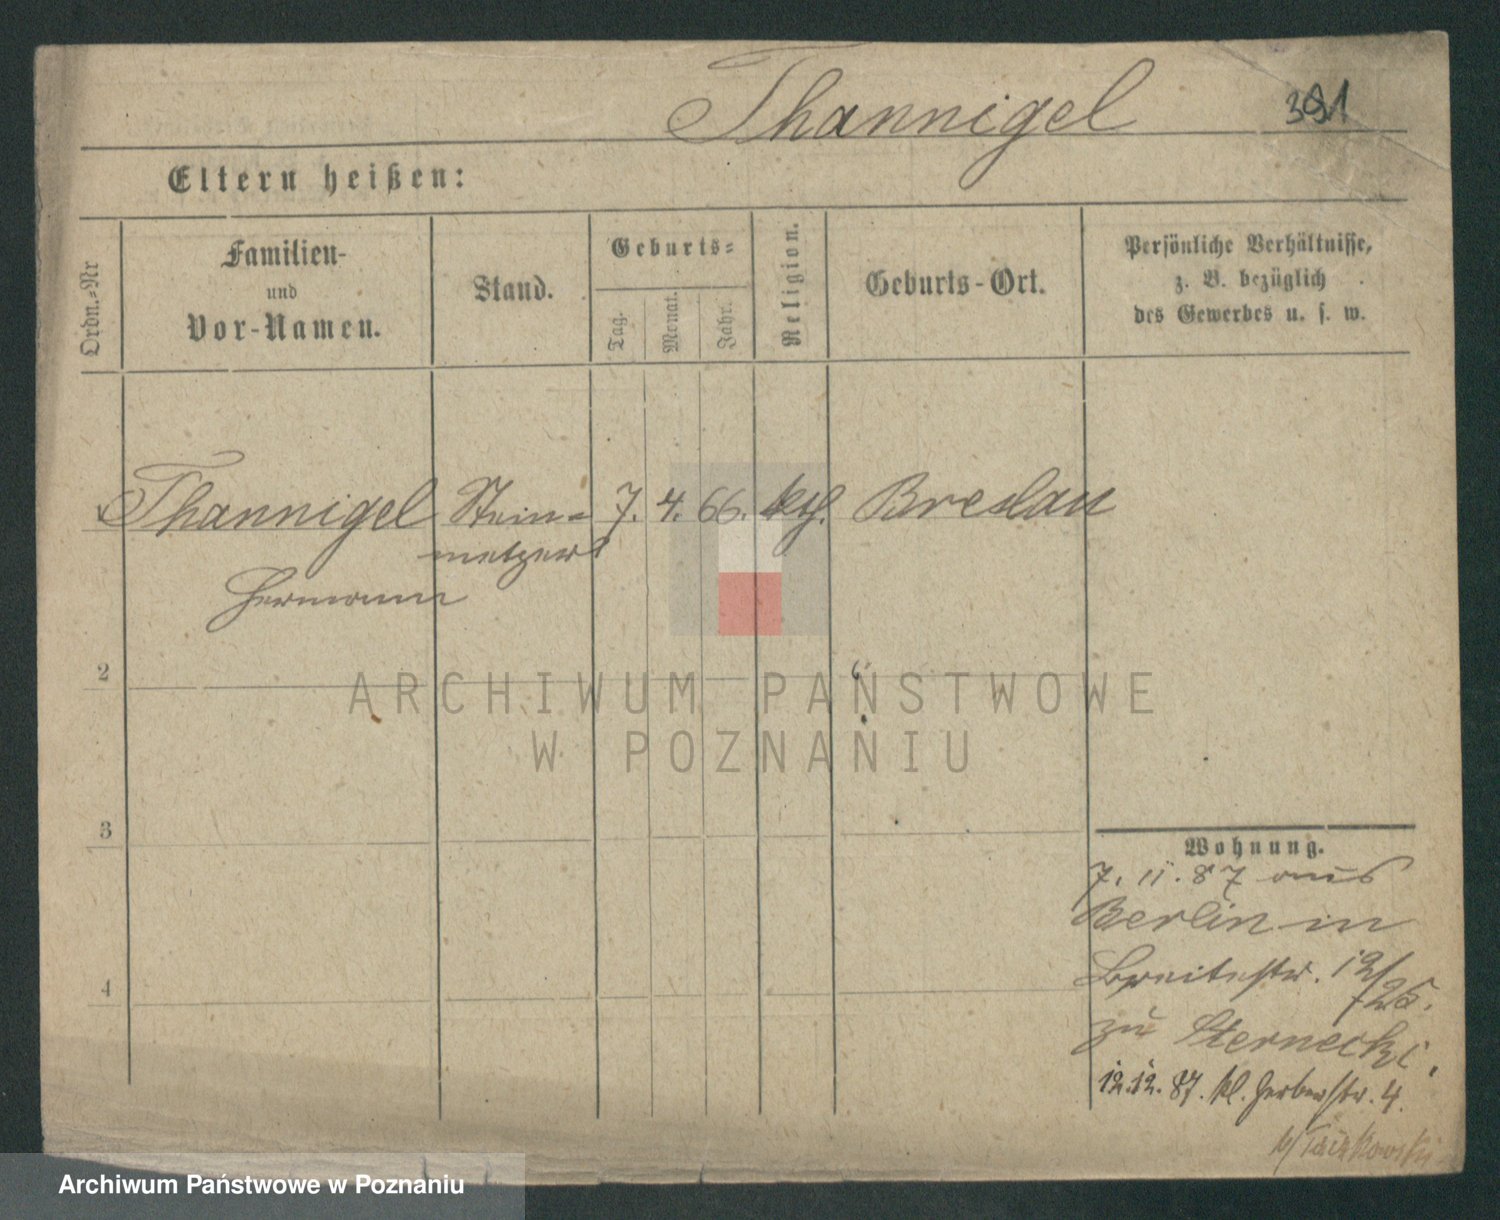 Thannigel
391
Eltern heißen:
Ordn.=Nr
Familien-
und
Vor-Namen.
Stand.
Geburts=
Tag.
Monat.
Jahr.
Religion.
Geburts-Ort.
Persönliche Verhältnisse,
z. B. bezüglich
des Gewerbes u. s. w.
Thannigel Stein= 7. 4. 66. kth. Breslau
metzer
Hermann
2
ARCHIWUM PAŃSTWOWE
W POZNANIU
3
4
Wohnung.
7. 11. 87 aus
Berlin in
Breitestr. 12/
/25.
zu Sternecki.
12.12. 87. kl. Gerberstr. 4.
Archiwum Państwowe w Poznaniu